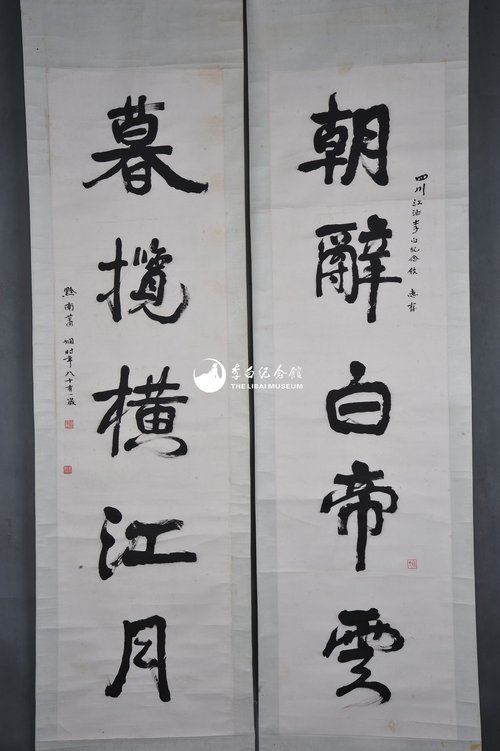 朝辭白帝雲
四川江油李白紀念館 惠存
暮攬橫江月
黔南蕭嫻時年八十有一歲
李白纪念馆
THE LIBAI MUSEUM